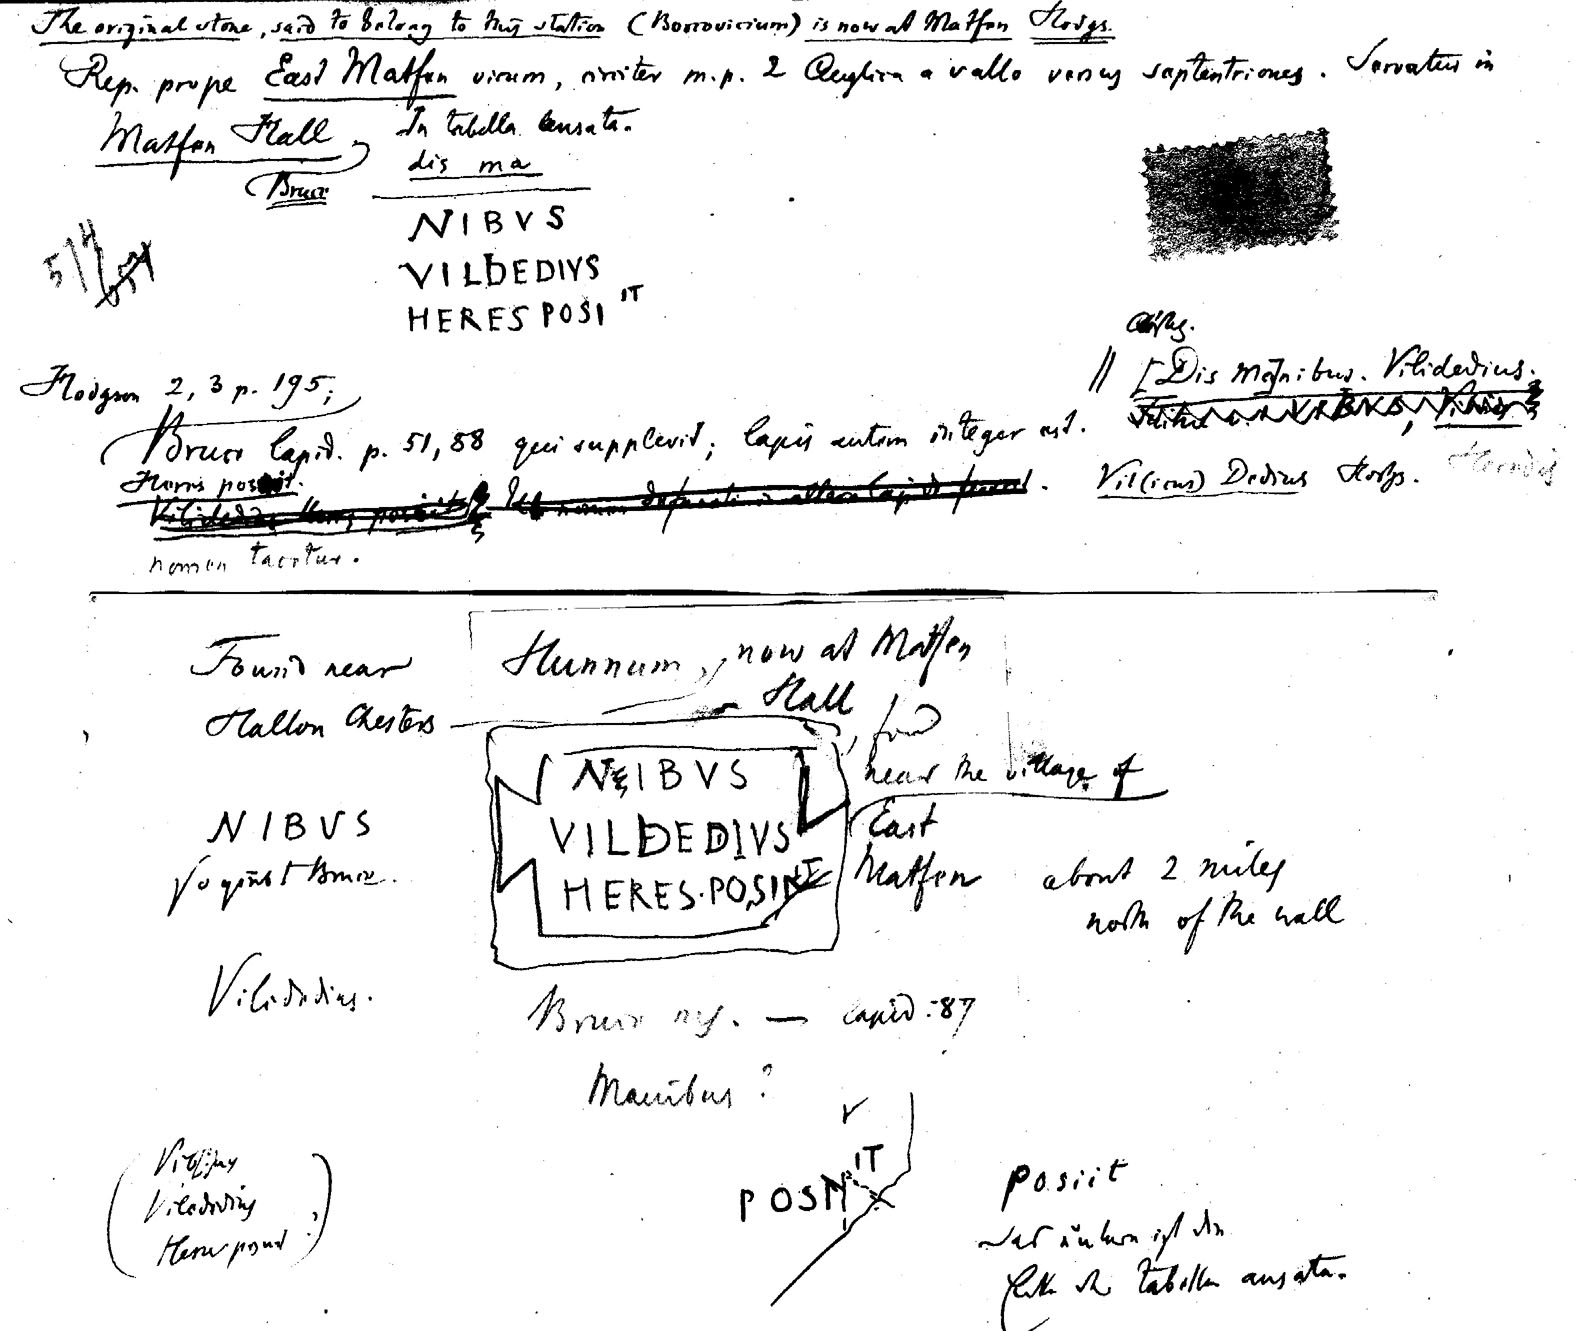 The original stone, said to belong to this station (Borrovicium) is now at Matfen Hodgs.
Rep. prope East Matfen vicum, circiter m.p. 2 Anglica a vallo versus septentriones. Servatur in
Matfen Hall
In tabella ansata.
dis ma
Bruce
NIBVS
VILDEDIVS
HERES POSI IT
514
Hodgson 2, 3 p. 195;
[Dis Ma]nibus. Vilidedius.
Bruce lapid. p. 51, 88 qui supplevit; lapis autem integer est.
Heres posiit.
Vil(icus) Dedius Hodgs.
nomen tacetur.
Found near
Hunnum, now at Matfen
Hall
Hallon Chesters
found
near the village of
East
Matfen about 2 miles
north of the wall
NIBVS
VILDEDIVS
HERES·POSI
NIBVS
Bruce.
Vilidedius.
Bruce — lapid: 87
Manibus?
Vilidedius
Heres posuit?
POSI IT
posiit
tabella ansata.